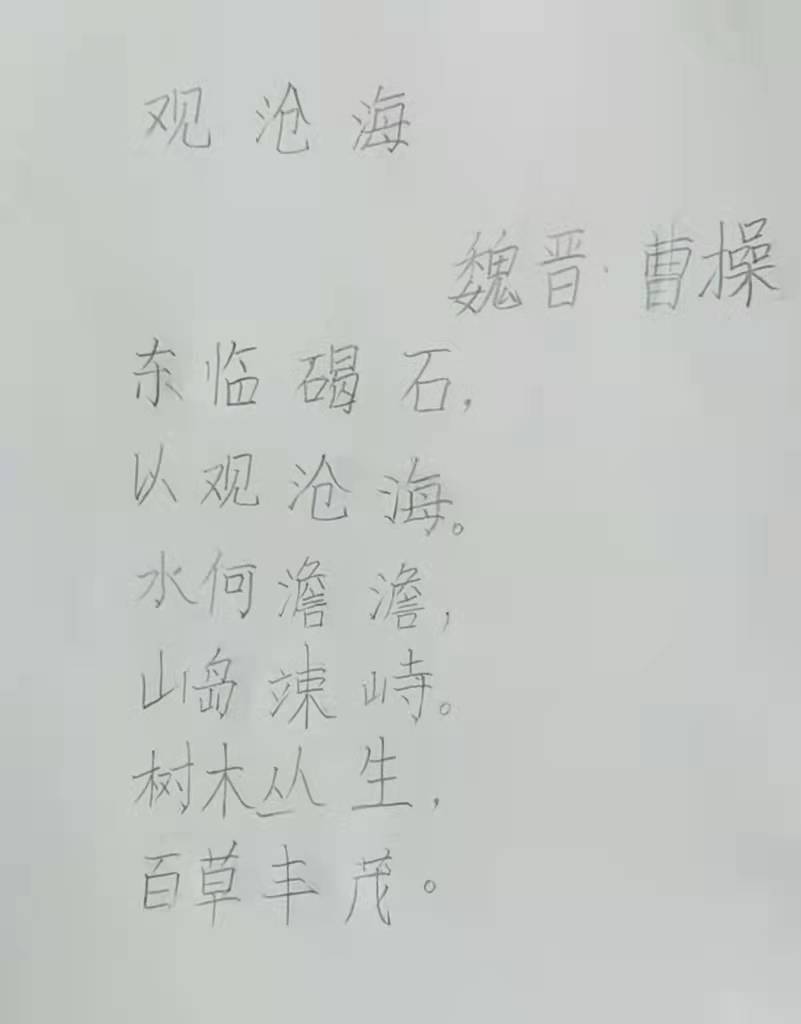 观沧海
魏晋·曹操
东临碣石,
以观沧海。
水何澹澹,
山岛竦峙。
树木丛生,
百草丰茂。